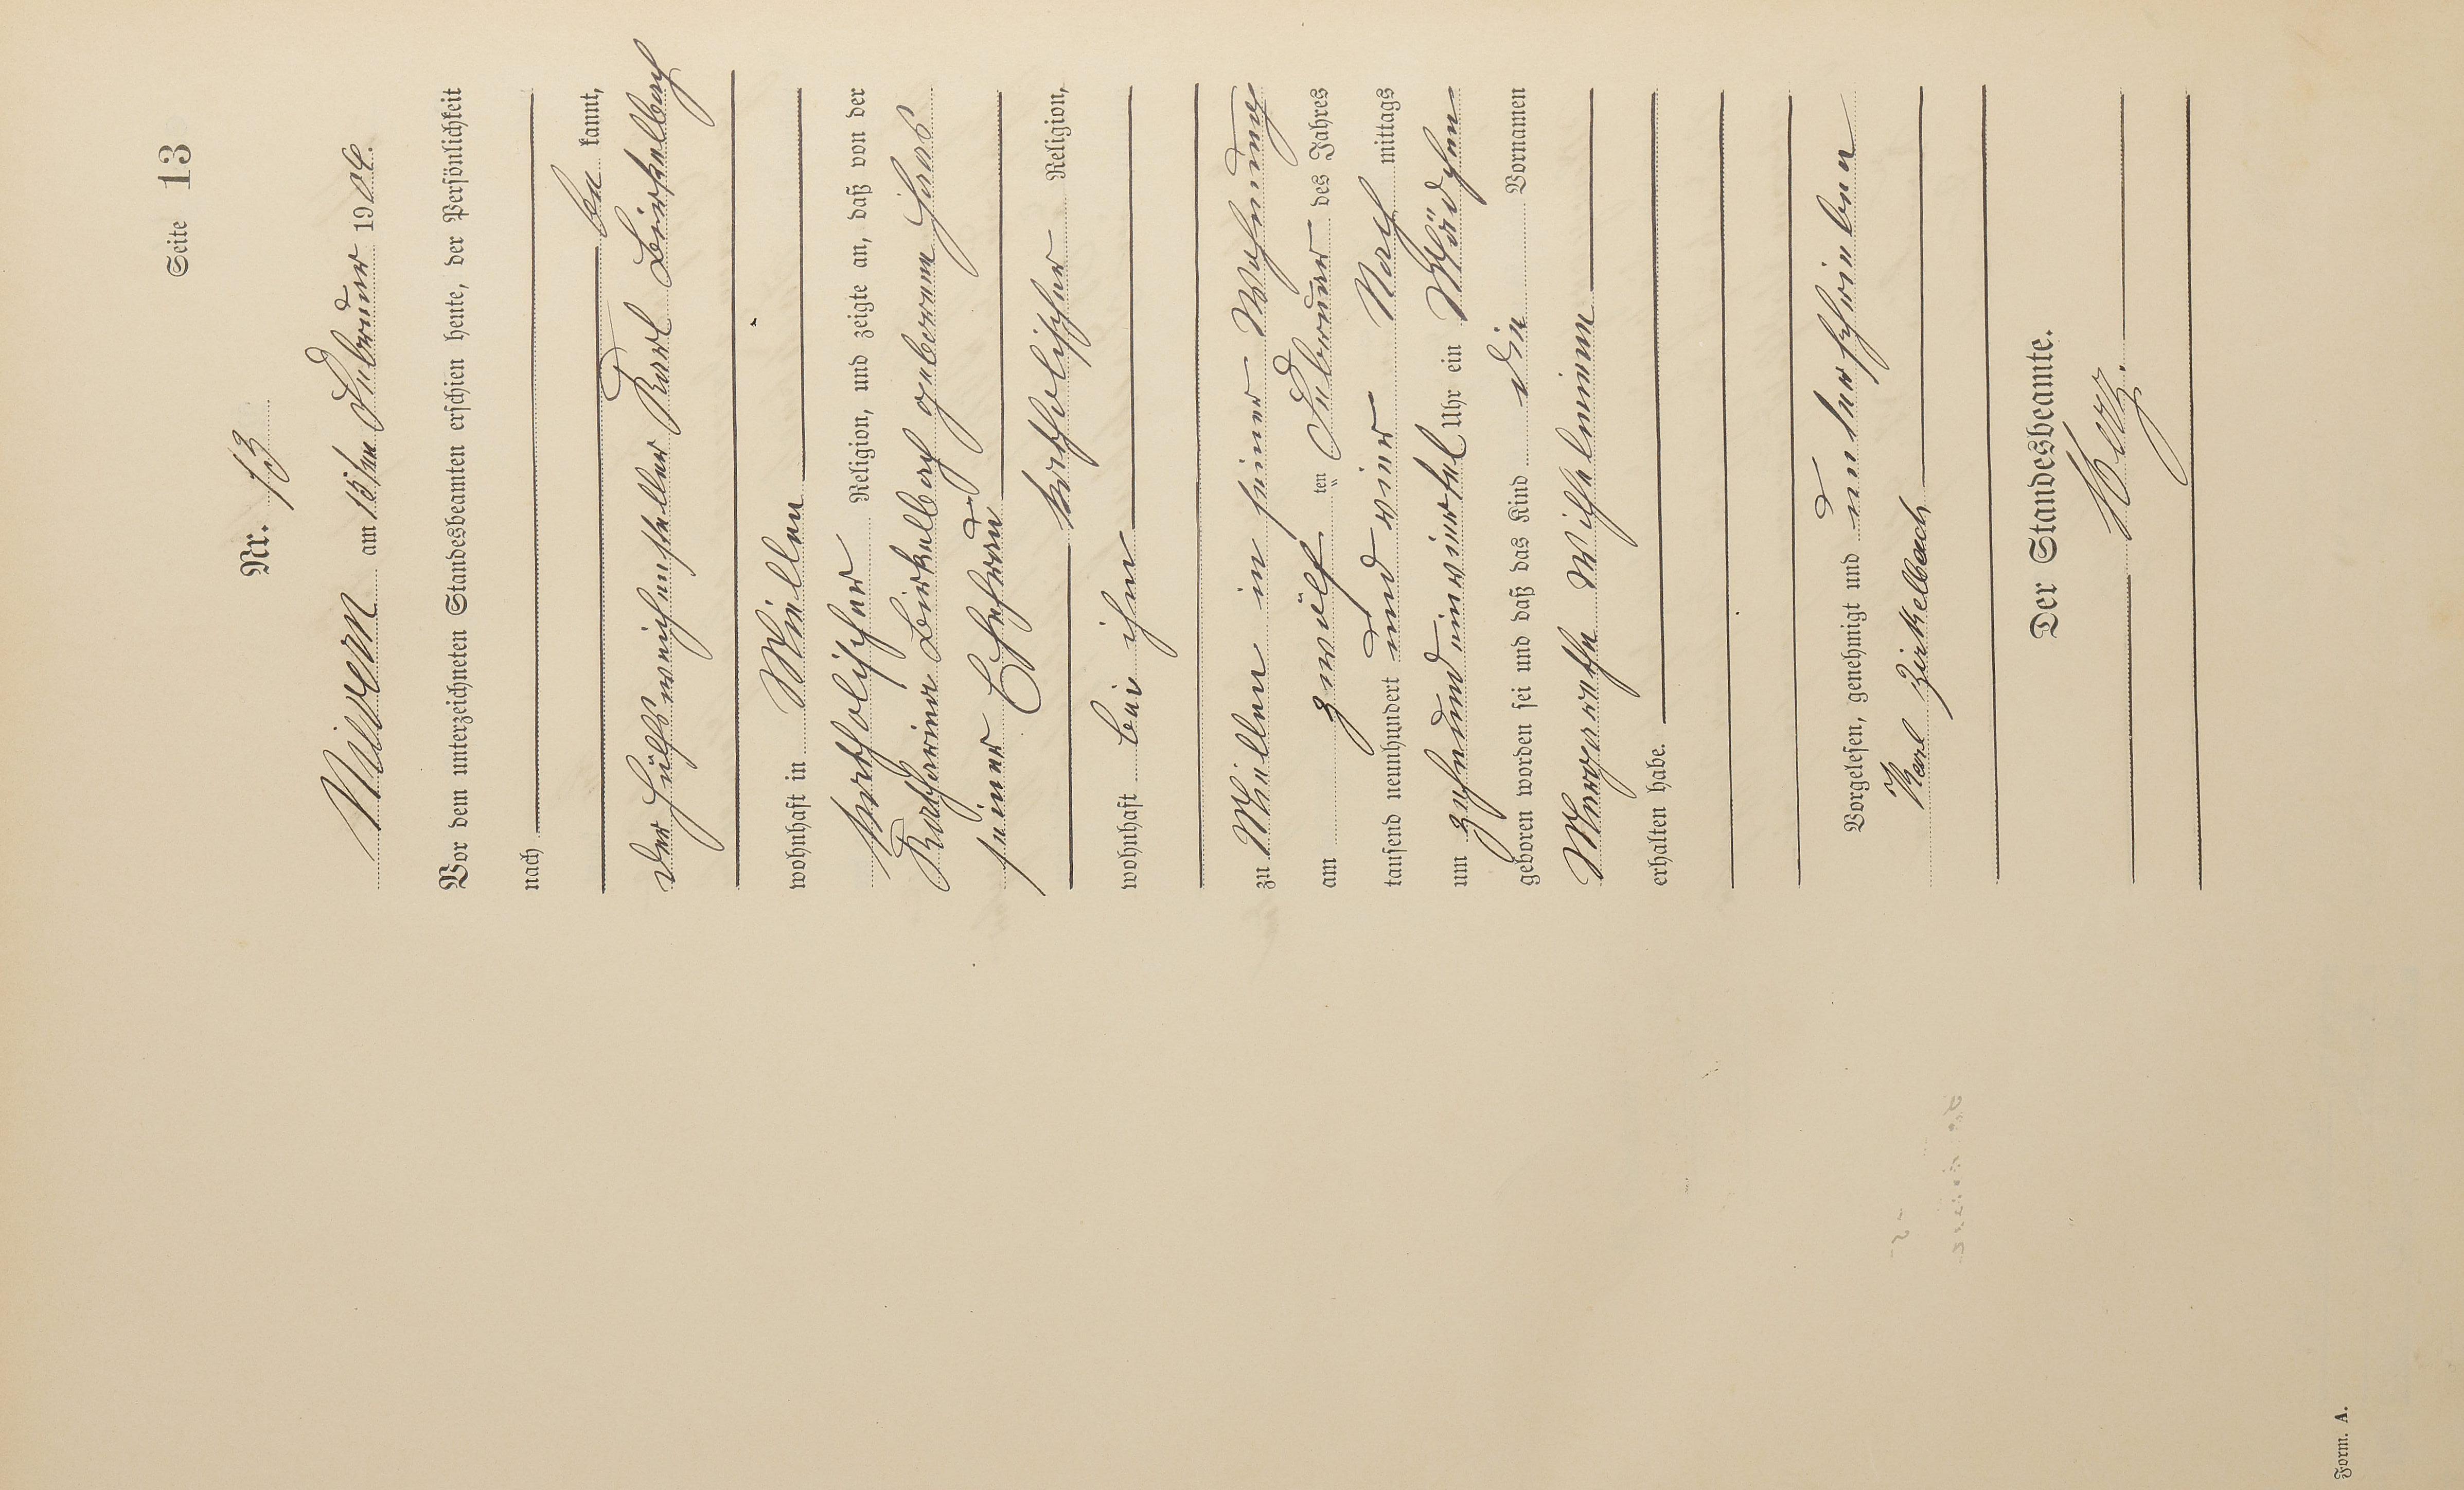 Seite 13
Nr. 13
Nievern am 13ten Februar 1904.
Vor dem unterzeichneten Standesbeamten erschien heute, der Persönlichkeit
nach
be kannt,
der Hülfsweichensteller Karl Zirkelbach
wohnhaft in Miellen
katholischer Religion, und zeigte an, daß von der
Katharina Zirkelbach geborenen Haas
seiner Ehefrau
katholischer Religion,
wohnhaft bei ihm
zu Miellen in seiner Wohnung
am zwölf ten Februar des Jahres
tausend neunhundert und vier Nach mittags
um zehnundeinviertel Uhr ein Mädchen
geboren worden sei und daß das Kind die Vornamen
Margaretha Wilhelmine
erhalten habe.
Vorgelesen, genehmigt und unterschrieben
Karl Zirkelbach
Der Standesbeamte.
Form. A.